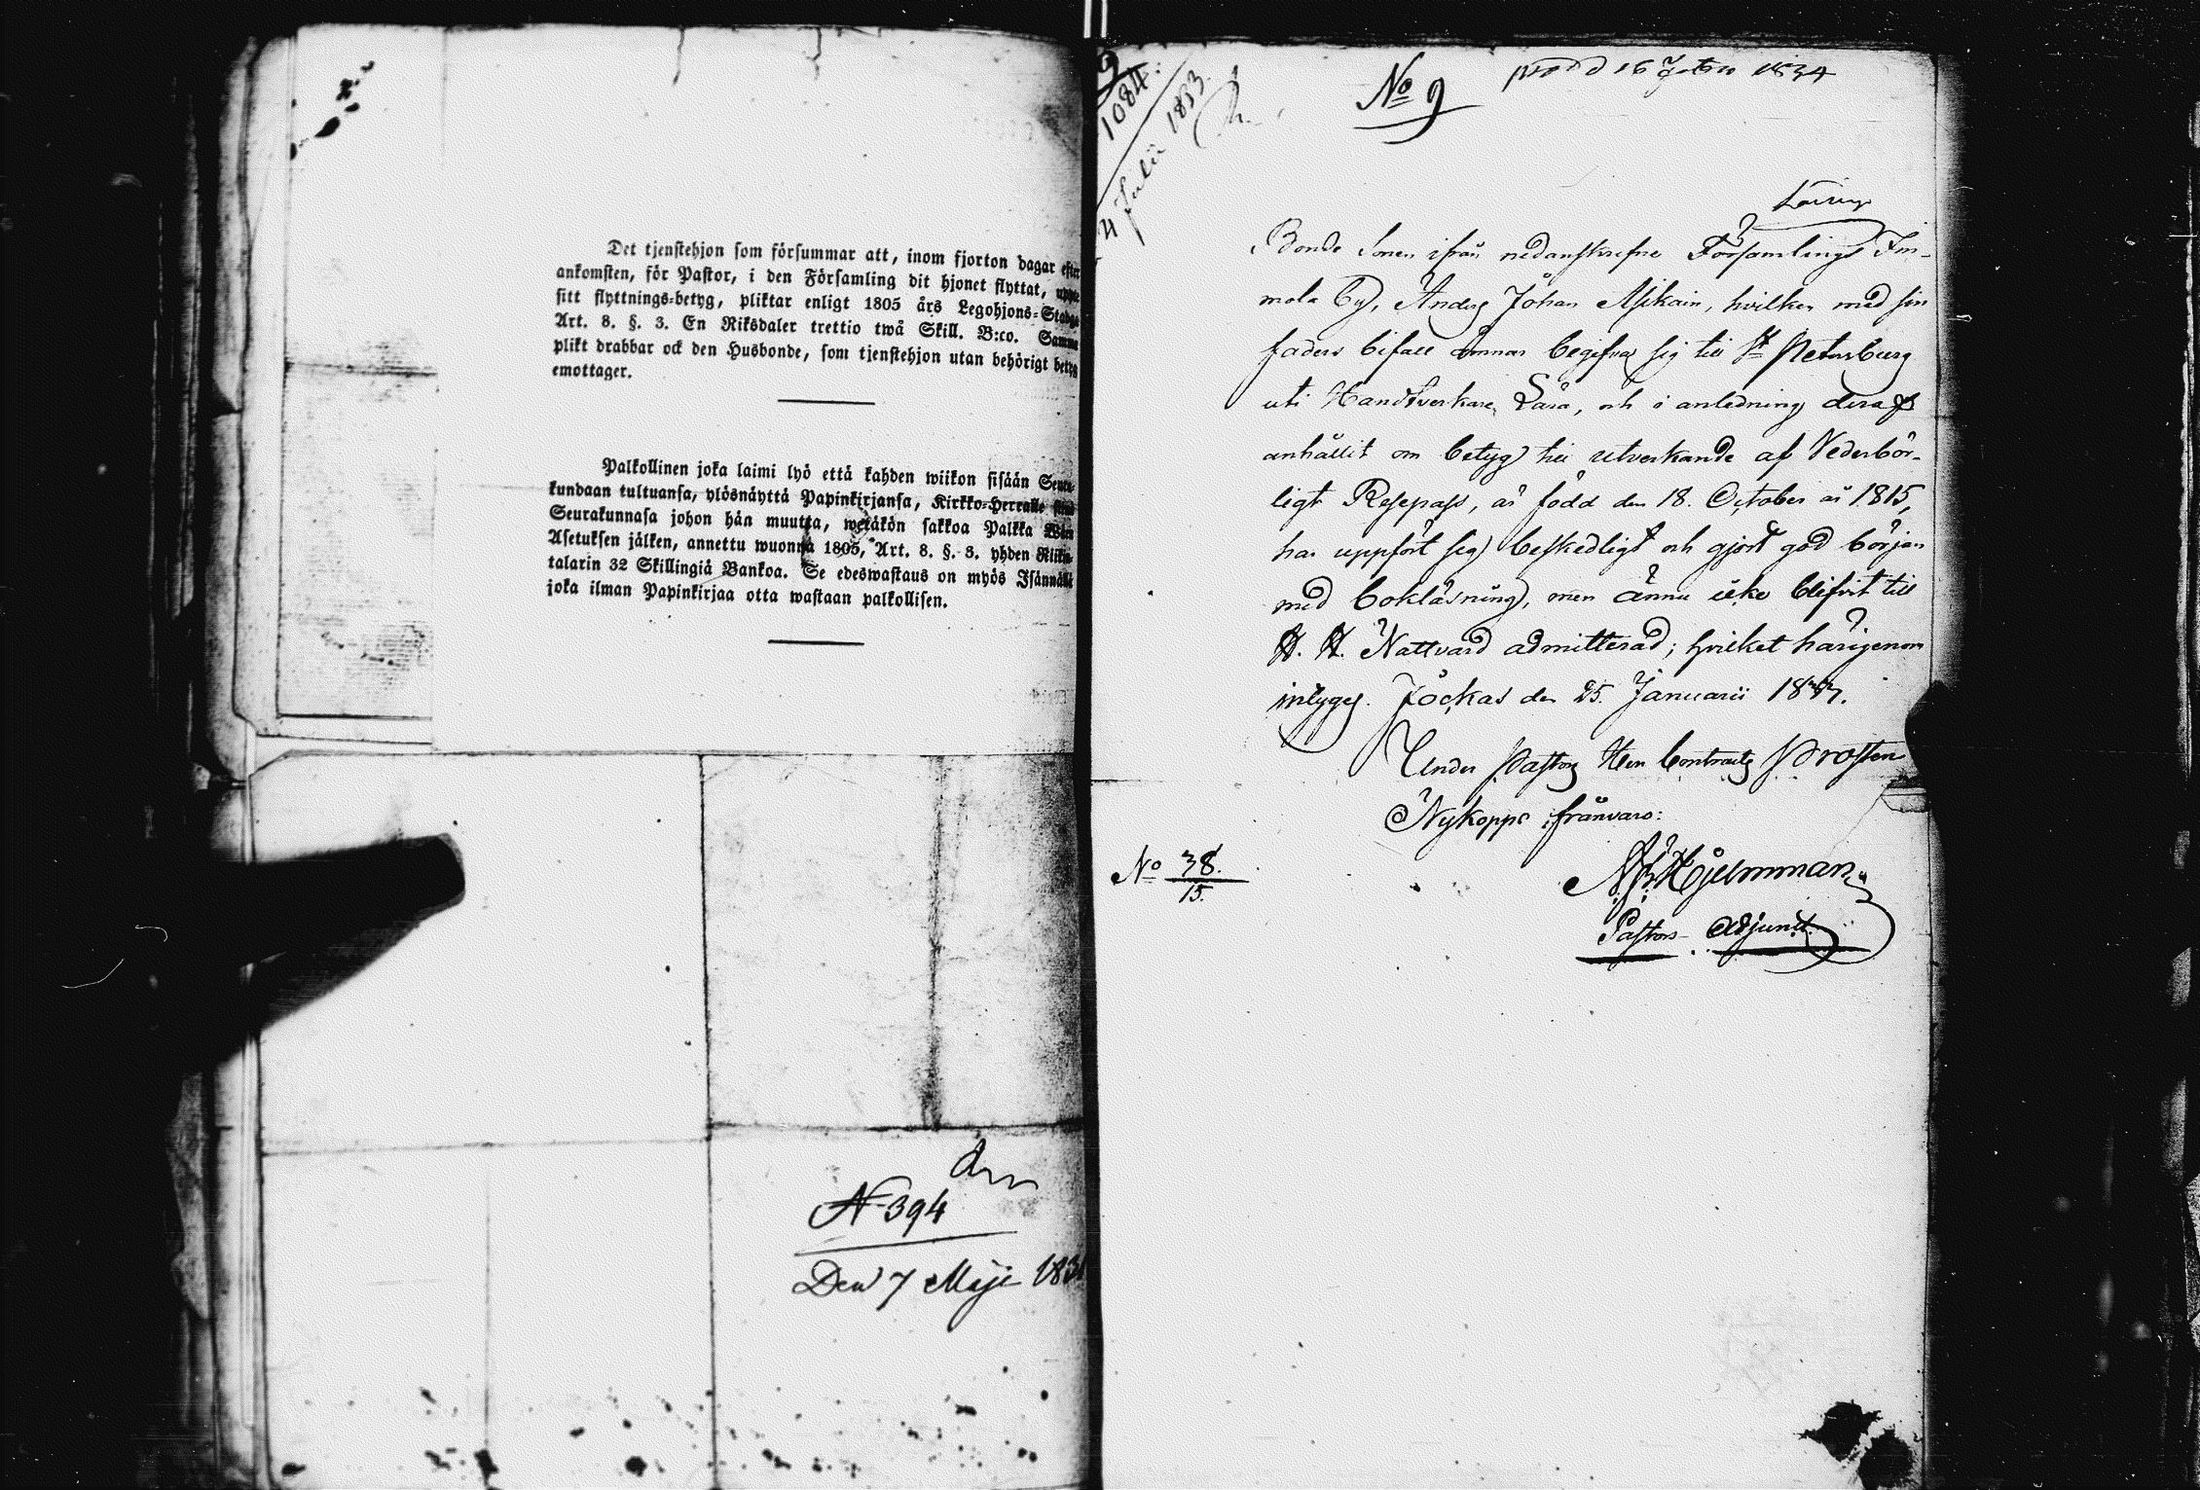 Det tjenstehjon som försummar att, inom fjorton dagar efter
ankomsten, för Pastor, i den Församling dit hjonet flyttat,
sitt flyttnings-betyg, pliktar enligt 1805 års Legohjons-Stadga
Art. 8. §. 3. En Riksdaler trettio twå Skill. B:co. Samma
plikt drabbar ock den Husbonde, som tjenstehjon utan behörigt betyg
emottager.
Palkollinen joka laimi lyö että kahden wiikon sisään Seura-
kundaan tultuansa, ylösnäyttä Papinkirjansa, Kirkko-Herralle
Seurakunnasa johon hän muutta, wetäkön sakkoa Palkka Wäen
Asetuksen jälken, annettu wuonna 1805, Art. 8. §. 3. yhden Rikin-
talarin 32 Skillingiä Bankoa. Se edeswastaus on myös Isännällä
joka ilman Papinkirjaa otta wastaan palkollisen.
N 394
Den 7 Maji 183
9
1084.
4 Julii 1833.
No 9
1834
Bonde Sonen ifrån nedanskrefne Församlings Im-
mola By, Anders Johan Asikain, hvilken med sin
faders bifall ämnar begifva sig till St Petersburg
uti Handtverkare Lära, och i anledning deraf
anhållit om betyg till utverkande af Vederbör-
ligt Resepass, är född den 18. October år 1815,
har uppfört sig beskedligt och gjort god början
med bokläsning, men ännu icke blifvit till
H. H. Nattvard admitterad; hvilket härigenom
intygas. Jockas den 25. Januarii 1833.
Under Pastors Herr Contracts Prosten
Nykopps frånvaro:
Hjelmman
Pastors Adjunct.
No 38.
15.